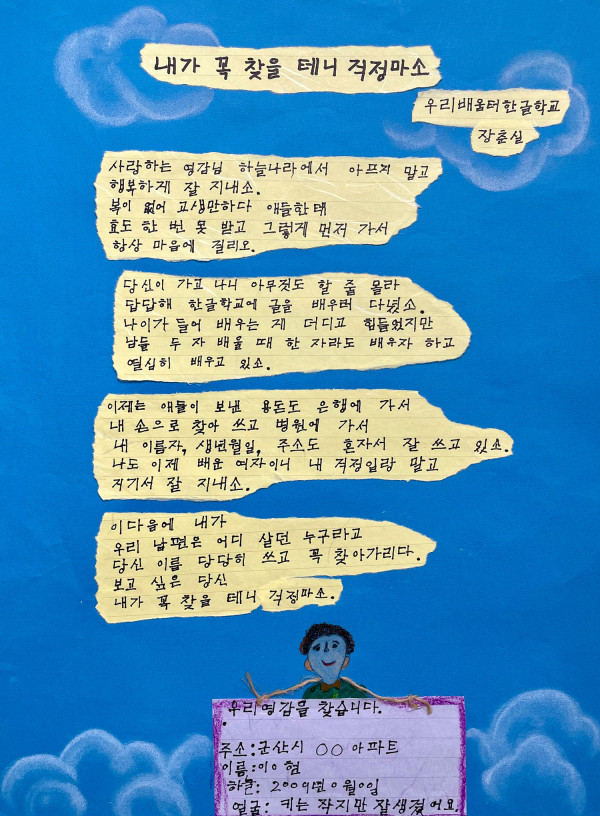 내가 꼭 찾을 테니 걱정마소
우리배움터한글학교
장춘실
사랑하는 영감님 하늘나라에서 아프지 말고
행복하게 잘 지내소.
복이 없어 고생만하다 애들한태
효도 한 번 못 받고 그렇게 먼저 가서
항상 마음에 걸리오.
당신이 가고 나니 아무것도 할 줄 몰라
답답해 한글학교에 글을 배우러 다녔소.
나이가 들어 배우는 게 더디고 힘들었지만
남들 두 자 배울 때 한 자라도 배우자 하고
열심히 배우고 있소.
이제는 애들이 보낸 용돈도 은행에 가서
내 손으로 찾아 쓰고 병원에 가서
내 이름자, 생년월일, 주소도 혼자서 잘 쓰고 있소.
나도 이제 배운 여자이니 내 걱정일랑 말고
거기서 잘 지내소.
이다음에 내가
우리 남편은 어디 살던 누구라고
당신 이름 당당히 쓰고 꼭 찾아가리다.
보고 싶은 당신
내가 꼭 찾을 테니 걱정마소.
우리영감을 찾습니다.
주소:군산시 ○○ 아파트
이름:이○형
하늘: 200이년 0월0일
얼굴: 키는 작지만 잘생겼어요.